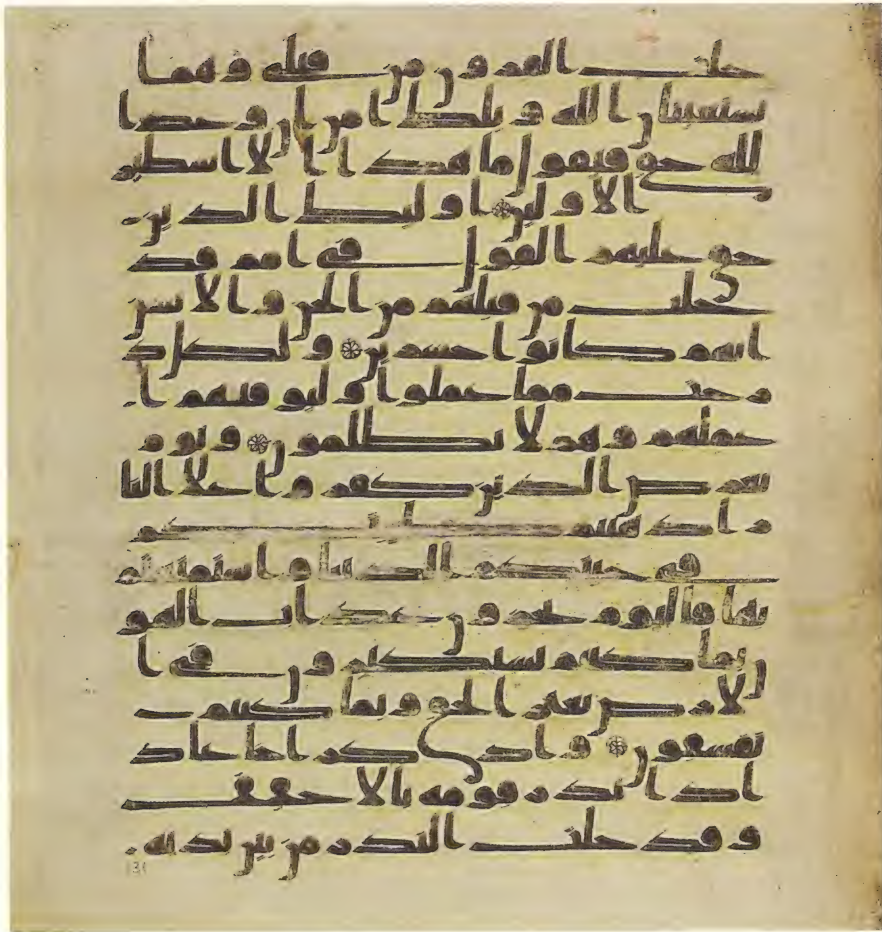 خلت القرون من قبلي وهما
يستغيثان الله ويلك امن ان وعد ا
لله حق فيقول ما هذا الا اسطير
الاولين اوليك الذين
حق عليهم القول في امم قد
خلت من قبلهم من الجن والانس
انهم كانوا خسرين ولكل د
رجت مما عملوا وليوفيهم ا
عملهم وهم لا يظلمون ويوم
يعرض الذين كفروا على النا
ر اذهبتم طيبتكم
في حيتكم الدنيا واستمتعتم
بها فاليوم تجزون عذاب الهو
ن بما كنتم تستكبرون في ا
لارض بغير الحق وبما كنتم
تفسقون واذكر اخا عاد
اذ انذر قومه بالاحقف
وقد خلت النذر من بين يديه